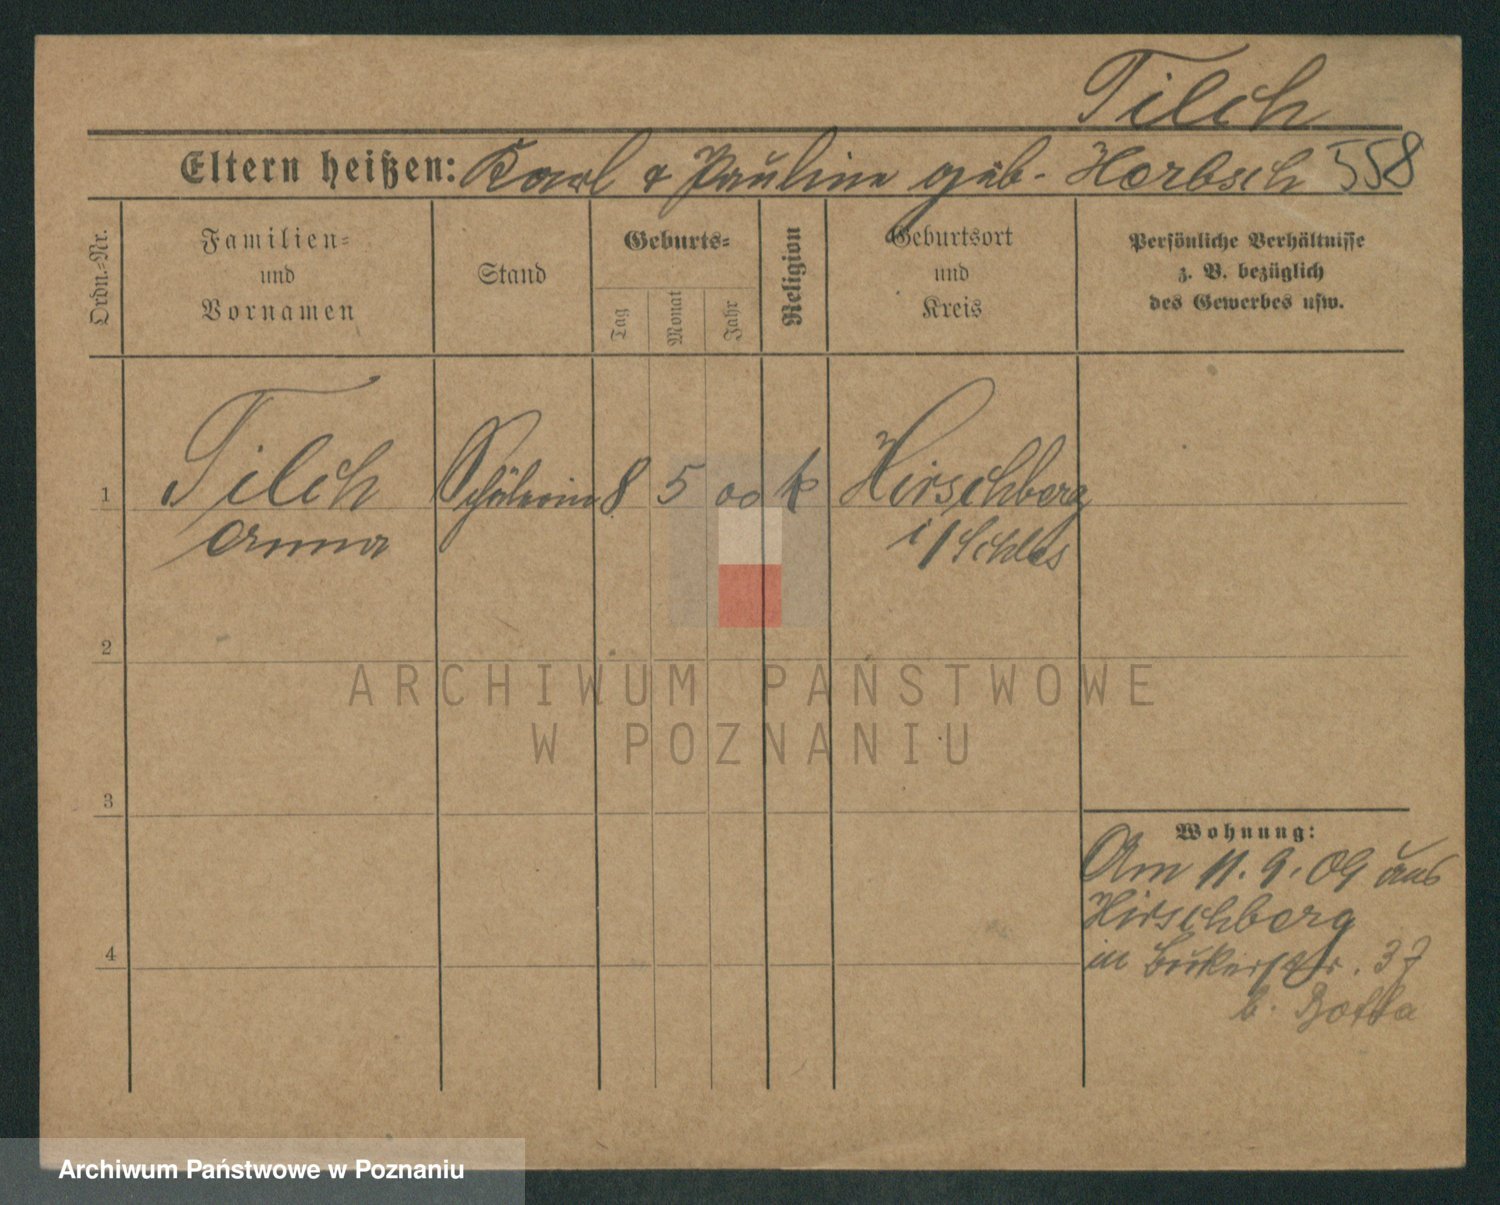 Tilch
Eltern heißen: Karl & Pauline geb. Herbsch 558
Ordn.-Nr.
Familien-
und
Vornamen
Stand
Geburts-
Tag
Monat
Jahr
Religion
Geburtsort
und
Kreis
Persönliche Verhältnisse
z. B. bezüglich
des Gewerbes usw.
1 Tilch Schülerin 8 5 00 k Hirschberg
Anna i/Schles
2
ARCHIWUM PAŃSTWOWE
W POZNANIU
3
Wohnung:
Am 11.9.09 aus
Hirschberg
4
in Bukerstr. 37
b. Botta
Archiwum Państwowe w Poznaniu